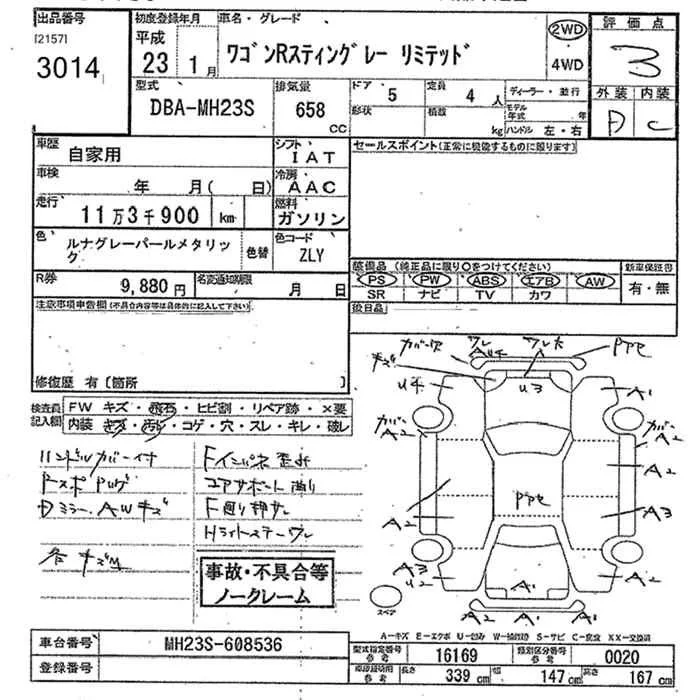 出品番号
[2157]
3014
初度登録年月
平成
23
1月
車名・グレード
ワゴンRスティングレー リミテッド
2WD
4WD
評価点
3
外装 内装
D C
型式
DBA-MH23S
排気量
658
CC
ドア
5
定員
4人
形状
積載
kg
ディーラー・並行
モデル年式 年
ハンドル 左・右
車歴
自家用
シフト
IAT
車検
年 月( 日)
冷房
AAC
走行
11万3千900 km
燃料
ガソリン
色
ルナグレーパールメタリック
色替
色コード
ZLY
R券
9,880円
名変通知期限
月 日
セールスポイント(正常に機能するものに限ります)
装備品(純正品に限り○をつけてください)
PS PW ABS エアB AW
SR ナビ TV カワ
新車保証書
有・無
後日品
注意事項申告欄(不具合内容等は具体的に記入して下さい)
修復歴 有〔箇所 〕
検査員記入欄
FW キズ・飛石・ヒビ割・リペア跡・×要
内装 キズ・汚れ・コゲ・穴・スレ・キレ・破レ
ハンドルカバー付
Dミラー、AWキズ
Fインパネ歪み
コアサポート曲り
F廻り押サレ
各キズM
事故・不具合等
ノークレーム
カバー欠
ワレ
A U4
ワレ大
A
PPキ
キズ
U4
U3
A1
カバー
A2
カバー
A2
A2
A2
A3
A2
PPキ
A3
U2
A2
A1
A1
スペア
A-キズ E-エクボ U-凹み W-補修跡 S-サビ C-腐食 XX-交換済
車台番号
MH23S-608536
登録番号
型式指定番号
参考
16169
類別区分番号
参考
0020
車検証明用
参考
長さ
339 cm
幅
147 cm
高さ
167 cm